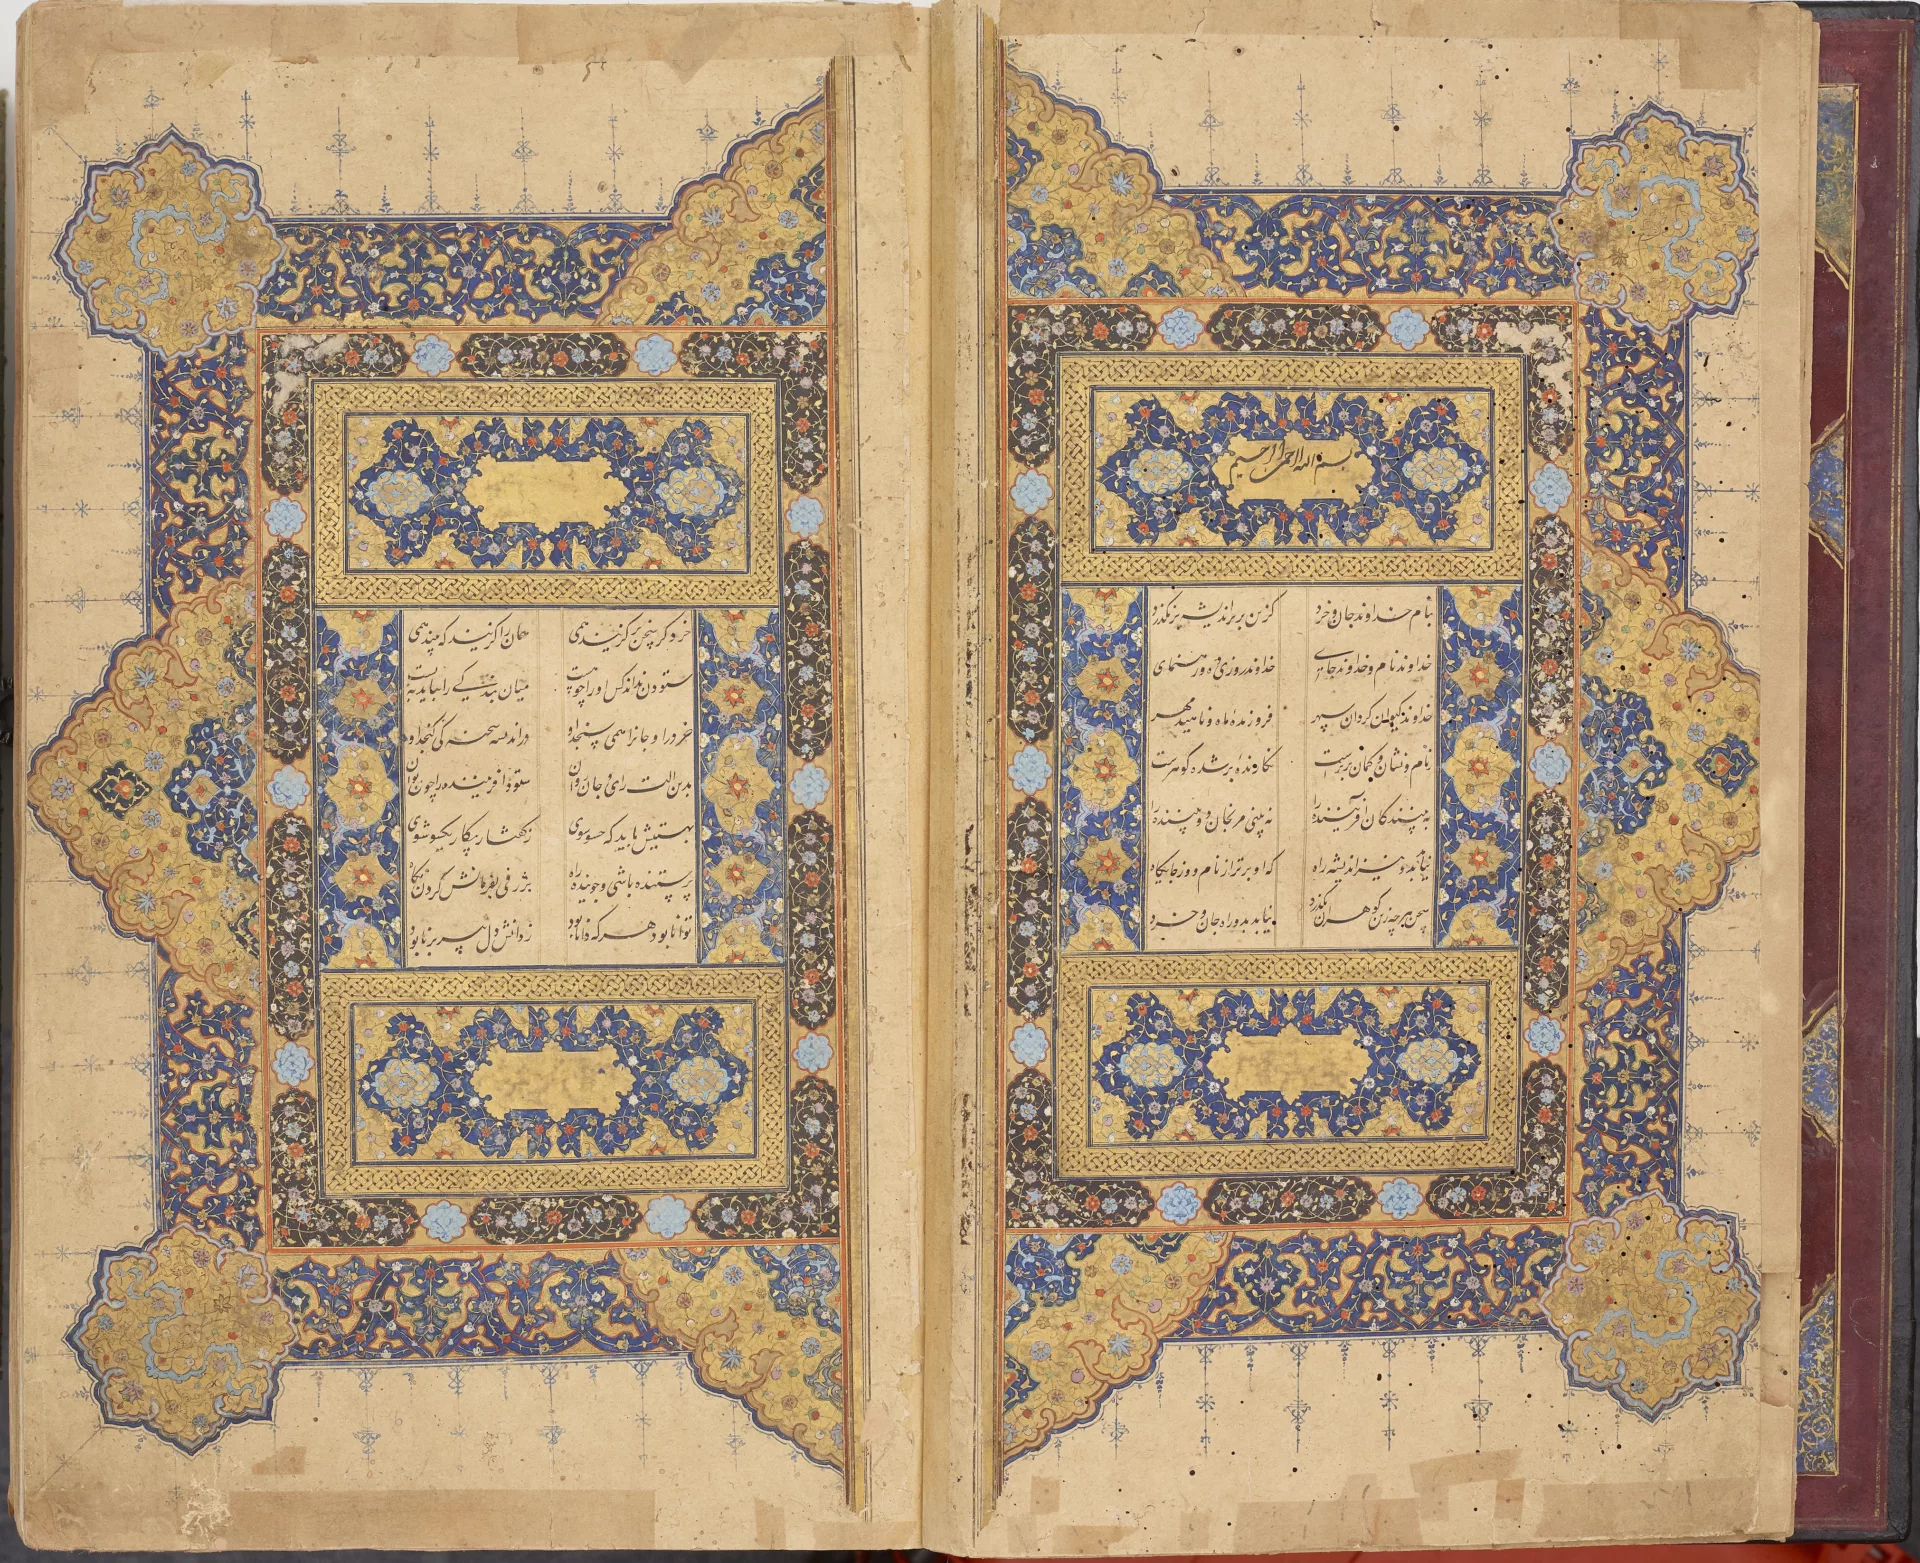 بسم الله الرحمن الرحیم
بنام خداوند جان و خرد کزین برتر اندیشه برنکذرد
خداوند نام و خداوند جای خداوند روزی ده و رهنمای
خداوند کیوان و کردان سپهر فروزنده ماه و ناهید و مهر
ز نام و نشان و کمان برترست نکارنده بر شده کوهرست
به بینندکان آفریننده را نه بینی مرنجان دو بیننده را
نیابد بدو نیز اندیشه راه که او برتر از نام و از جایکاه
سخن هر چه زین کوهران بکذرد نیابد بدو راه جان و خرد
خرد کر سخن برکزیند همی همان را کزیند که بیند همی
ستودن نداند کس او را چو هست میان بندکی را ببایدت بست
خرد را و جانرا همی سنجد او در اندیشه سخته کی کنجد او
بدین آلت رای و جان و روان ستود آفریننده را چون توان
بهستیش باید که خستو شوی ز کفتار بیکار یکسو شوی
پرستنده باشی و جوینده راه بژرفی بفرمانش کردن نکاه
توانا بود هر که دانا بود ز دانش دل پیر برنا بود